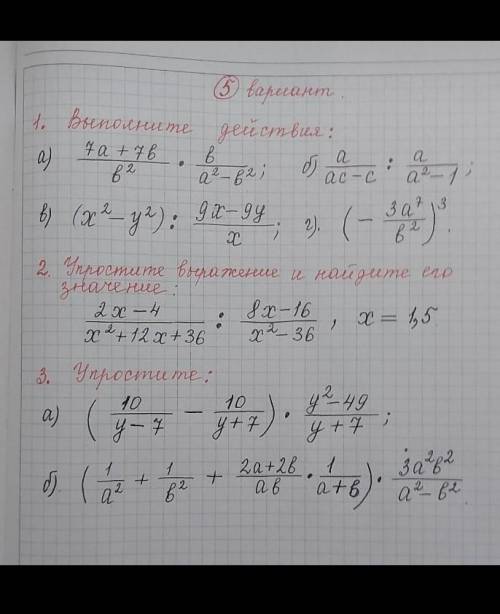 5 вариант.
1. Выполните действия:
а) (7a + 7b)/b² · b/(a² – b²); б) a/(ac – c) : a/(a² – 1);
в) (x² – y²) : (9x – 9y)/x; г). (– 3a⁷/b²)³.
2. Упростите выражение и найдите его
значение:
(2x – 4)/(x² + 12x + 36) : (8x – 16)/(x² – 36), x = 1,5
3. Упростите:
а) (10/(y – 7) – 10/(y + 7)) · (y² – 49)/(y + 7);
б) (1/a² + 1/b² + (2a + 2b)/ab · 1/(a + b)) · 3a²b²/(a² – b²)